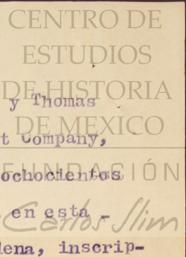 CENTRO DE
ESTUDIOS
DE HISTORIA
y Thomas
DE MEXICO
t Company,
FUNDACIÓN
ochocientos
Carlos Slim
en esta
lena, inscrip-